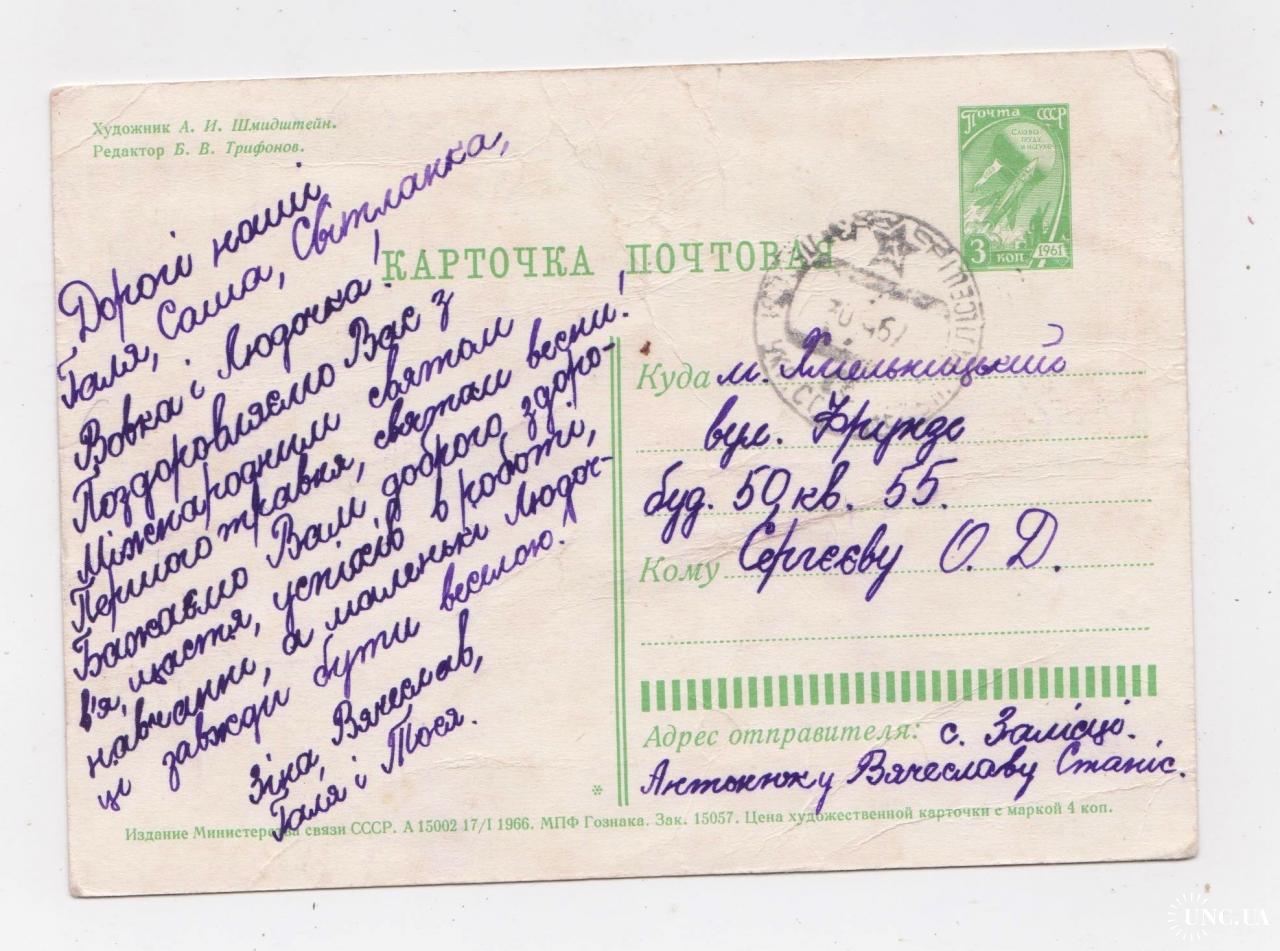 Художник А. И. Шмидштейн.
Редактор Б. В. Трифонов.
Почта СССР
Слава труду и науке
3 коп. 1961
КАРТОЧКА ПОЧТОВАЯ
Дорогі наші
Галя, Саша, Світланка,
Вовка і Людочка!
Поздоровляємо Вас з
Міжнародним святом
Першого травня, святом весни!
Бажаємо Вам доброго здоро-
в'я, щастя, успіхів в роботі,
навчанні, а маленькі Людоч-
ці завжди бути веселою.
Зіна, Вячеслав,
Галя і Тося.
Куда м. Хмельницький
вул. Фрунзе
буд. 50, кв. 55.
Кому Сергєєву О. Д.
Адрес отправителя: с. Залісці.
Антонюку Вячеславу Станіс.
*
Издание Министерства связи СССР. А 15002 17/I 1966. МПФ Гознака. Зак. 15057. Цена художественной карточки с маркой 4 коп.
UNC.UA